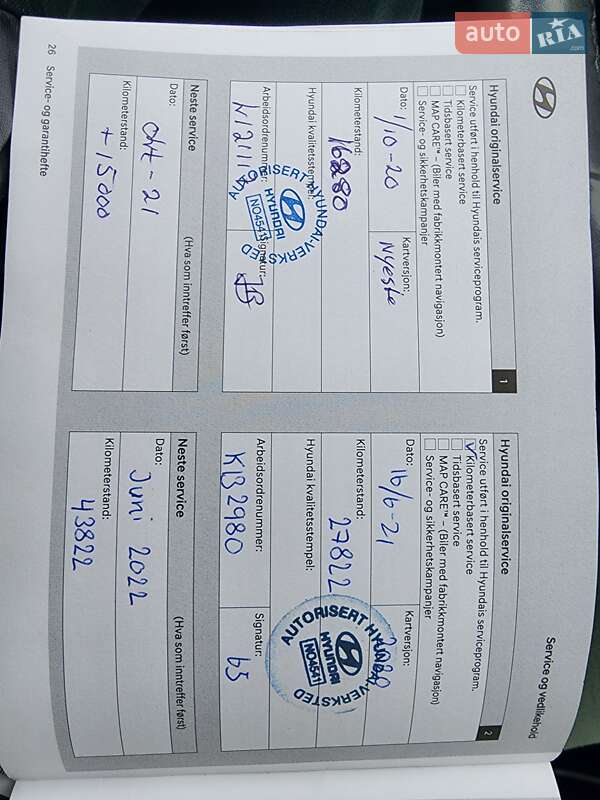 auto RIA.com
Service og vedlikehold
Hyundai originalservice
1
Service utført i henhold til Hyundais serviceprogram.
Kilometerbasert service
Tidsbasert service
MAP CARE™ – (Biler med fabrikkmontert navigasjon)
Service- og sikkerhetskampanjer
Dato: 1/10-20
Kartversjon:
Nyeste
Kilometerstand:
Hyundai kvalitetsstempel:
AUTORISERT HYUNDAI-VERKSTED
HYUNDAI
NO4541
Arbeidsordrenummer:
Signatur:
Neste service
(Hva som inntreffer først)
Dato:
Okt - 21
Kilometerstand:
+ 15000
Hyundai originalservice
2
Service utført i henhold til Hyundais serviceprogram.
Kilometerbasert service
Tidsbasert service
MAP CARE™ – (Biler med fabrikkmontert navigasjon)
Service- og sikkerhetskampanjer
Dato:
16/6-21
Kartversjon:
Kilometerstand:
27822
Hyundai kvalitetsstempel:
AUTORISERT HYUNDAI-VERKSTED
HYUNDAI
NO4541
Arbeidsordrenummer:
KB2980
Signatur:
Neste service
(Hva som inntreffer først)
Dato:
Juni 2022
Kilometerstand:
43822
26 Service- og garantihefte